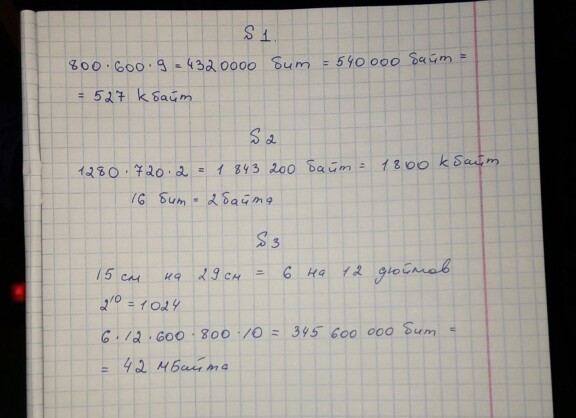 № 1.
800 · 600 · 9 = 4320000 бит = 540 000 байт =
= 527 кбайт
№ 2
1280 · 720 · 2 = 1 843 200 байт = 1800 кбайт
16 бит = 2 байта
№ 3
15 см на 29 см = 6 на 12 дюймов
2¹⁰ = 1024
6 · 12 · 600 · 800 · 10 = 345 600 000 бит =
= 42 мбайта